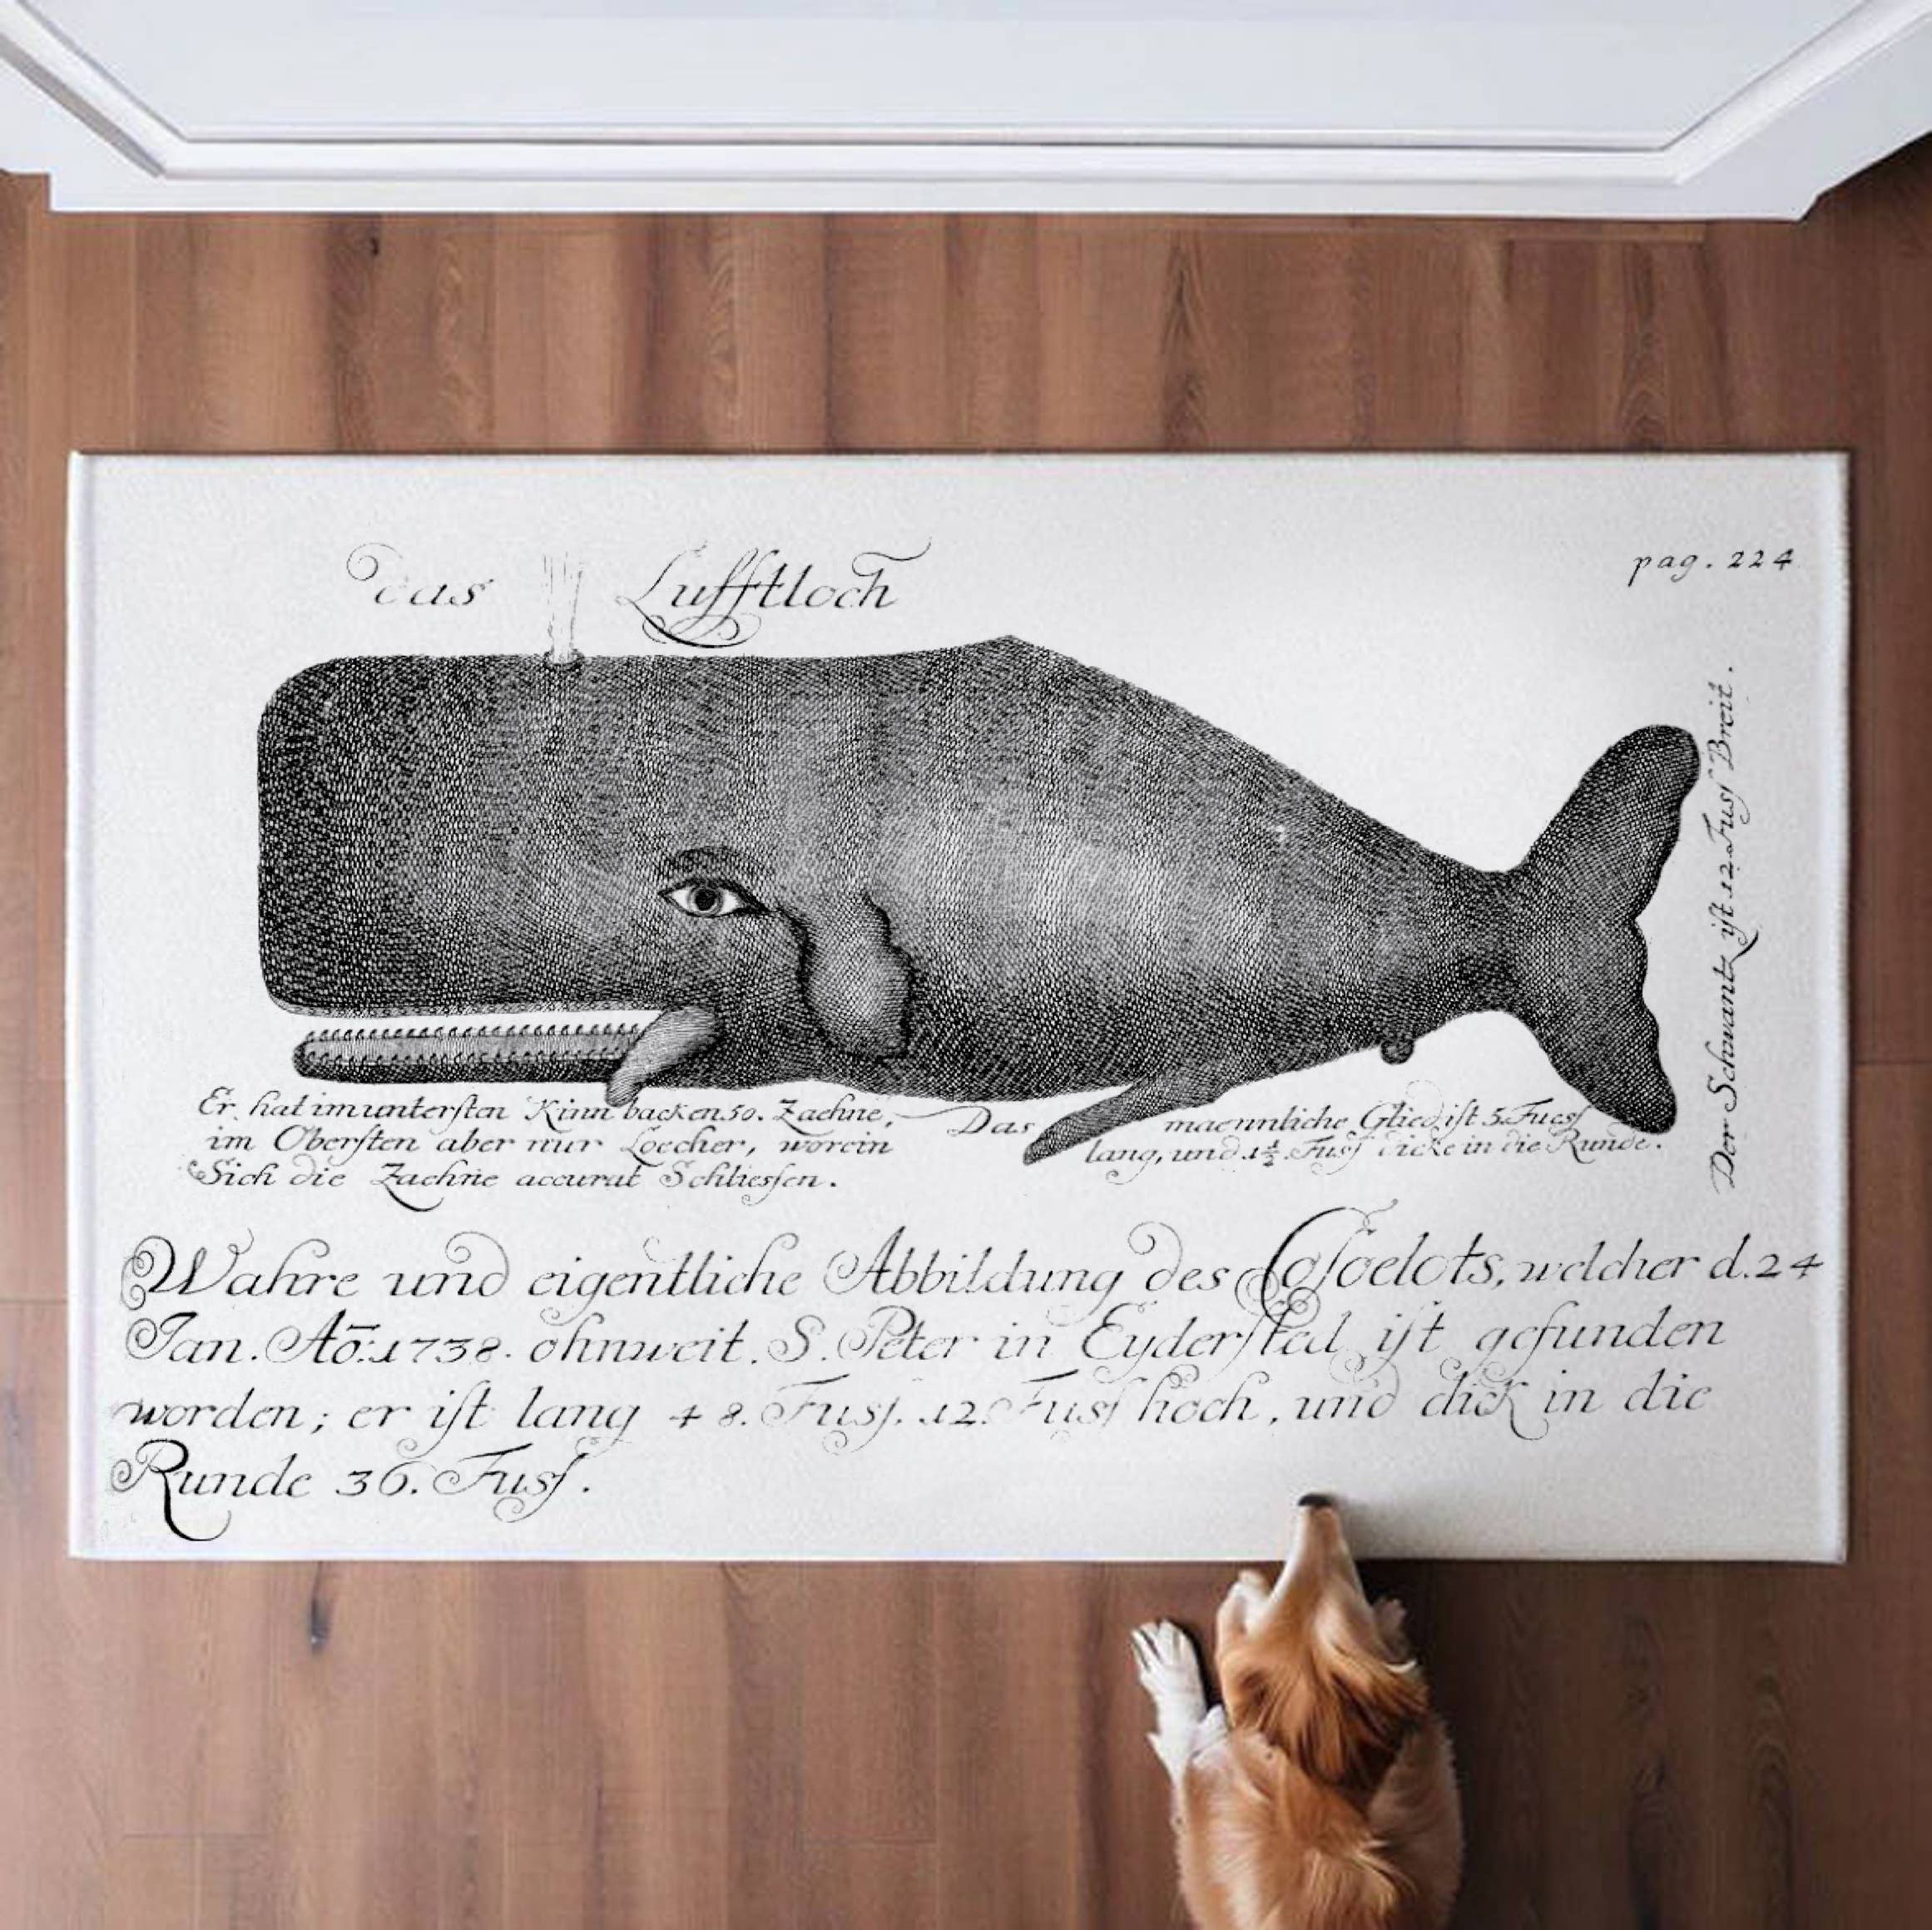 das Lufftloch
pag. 224
Der Schwantz ist 12 Fuss Breit.
Er hat im untersten Kinn backen 50. Zaehne,
im Obersten aber nur Loecher, worein
Sich die Zaehne accurat Schliessen.
Das maennliche Glied ist 5. Fuess
lang, und 1½ Fuss dicke in die Runde.
Wahre und eigentliche Abbildung des Cosoelots, welcher d. 24
Jan. Aō: 1738. ohnweit. S. Peter in Eydersted ist gefunden
worden; er ist lang 48. Fuss. 12. Fuss hoch, und dick in die
Runde 36. Fuss.